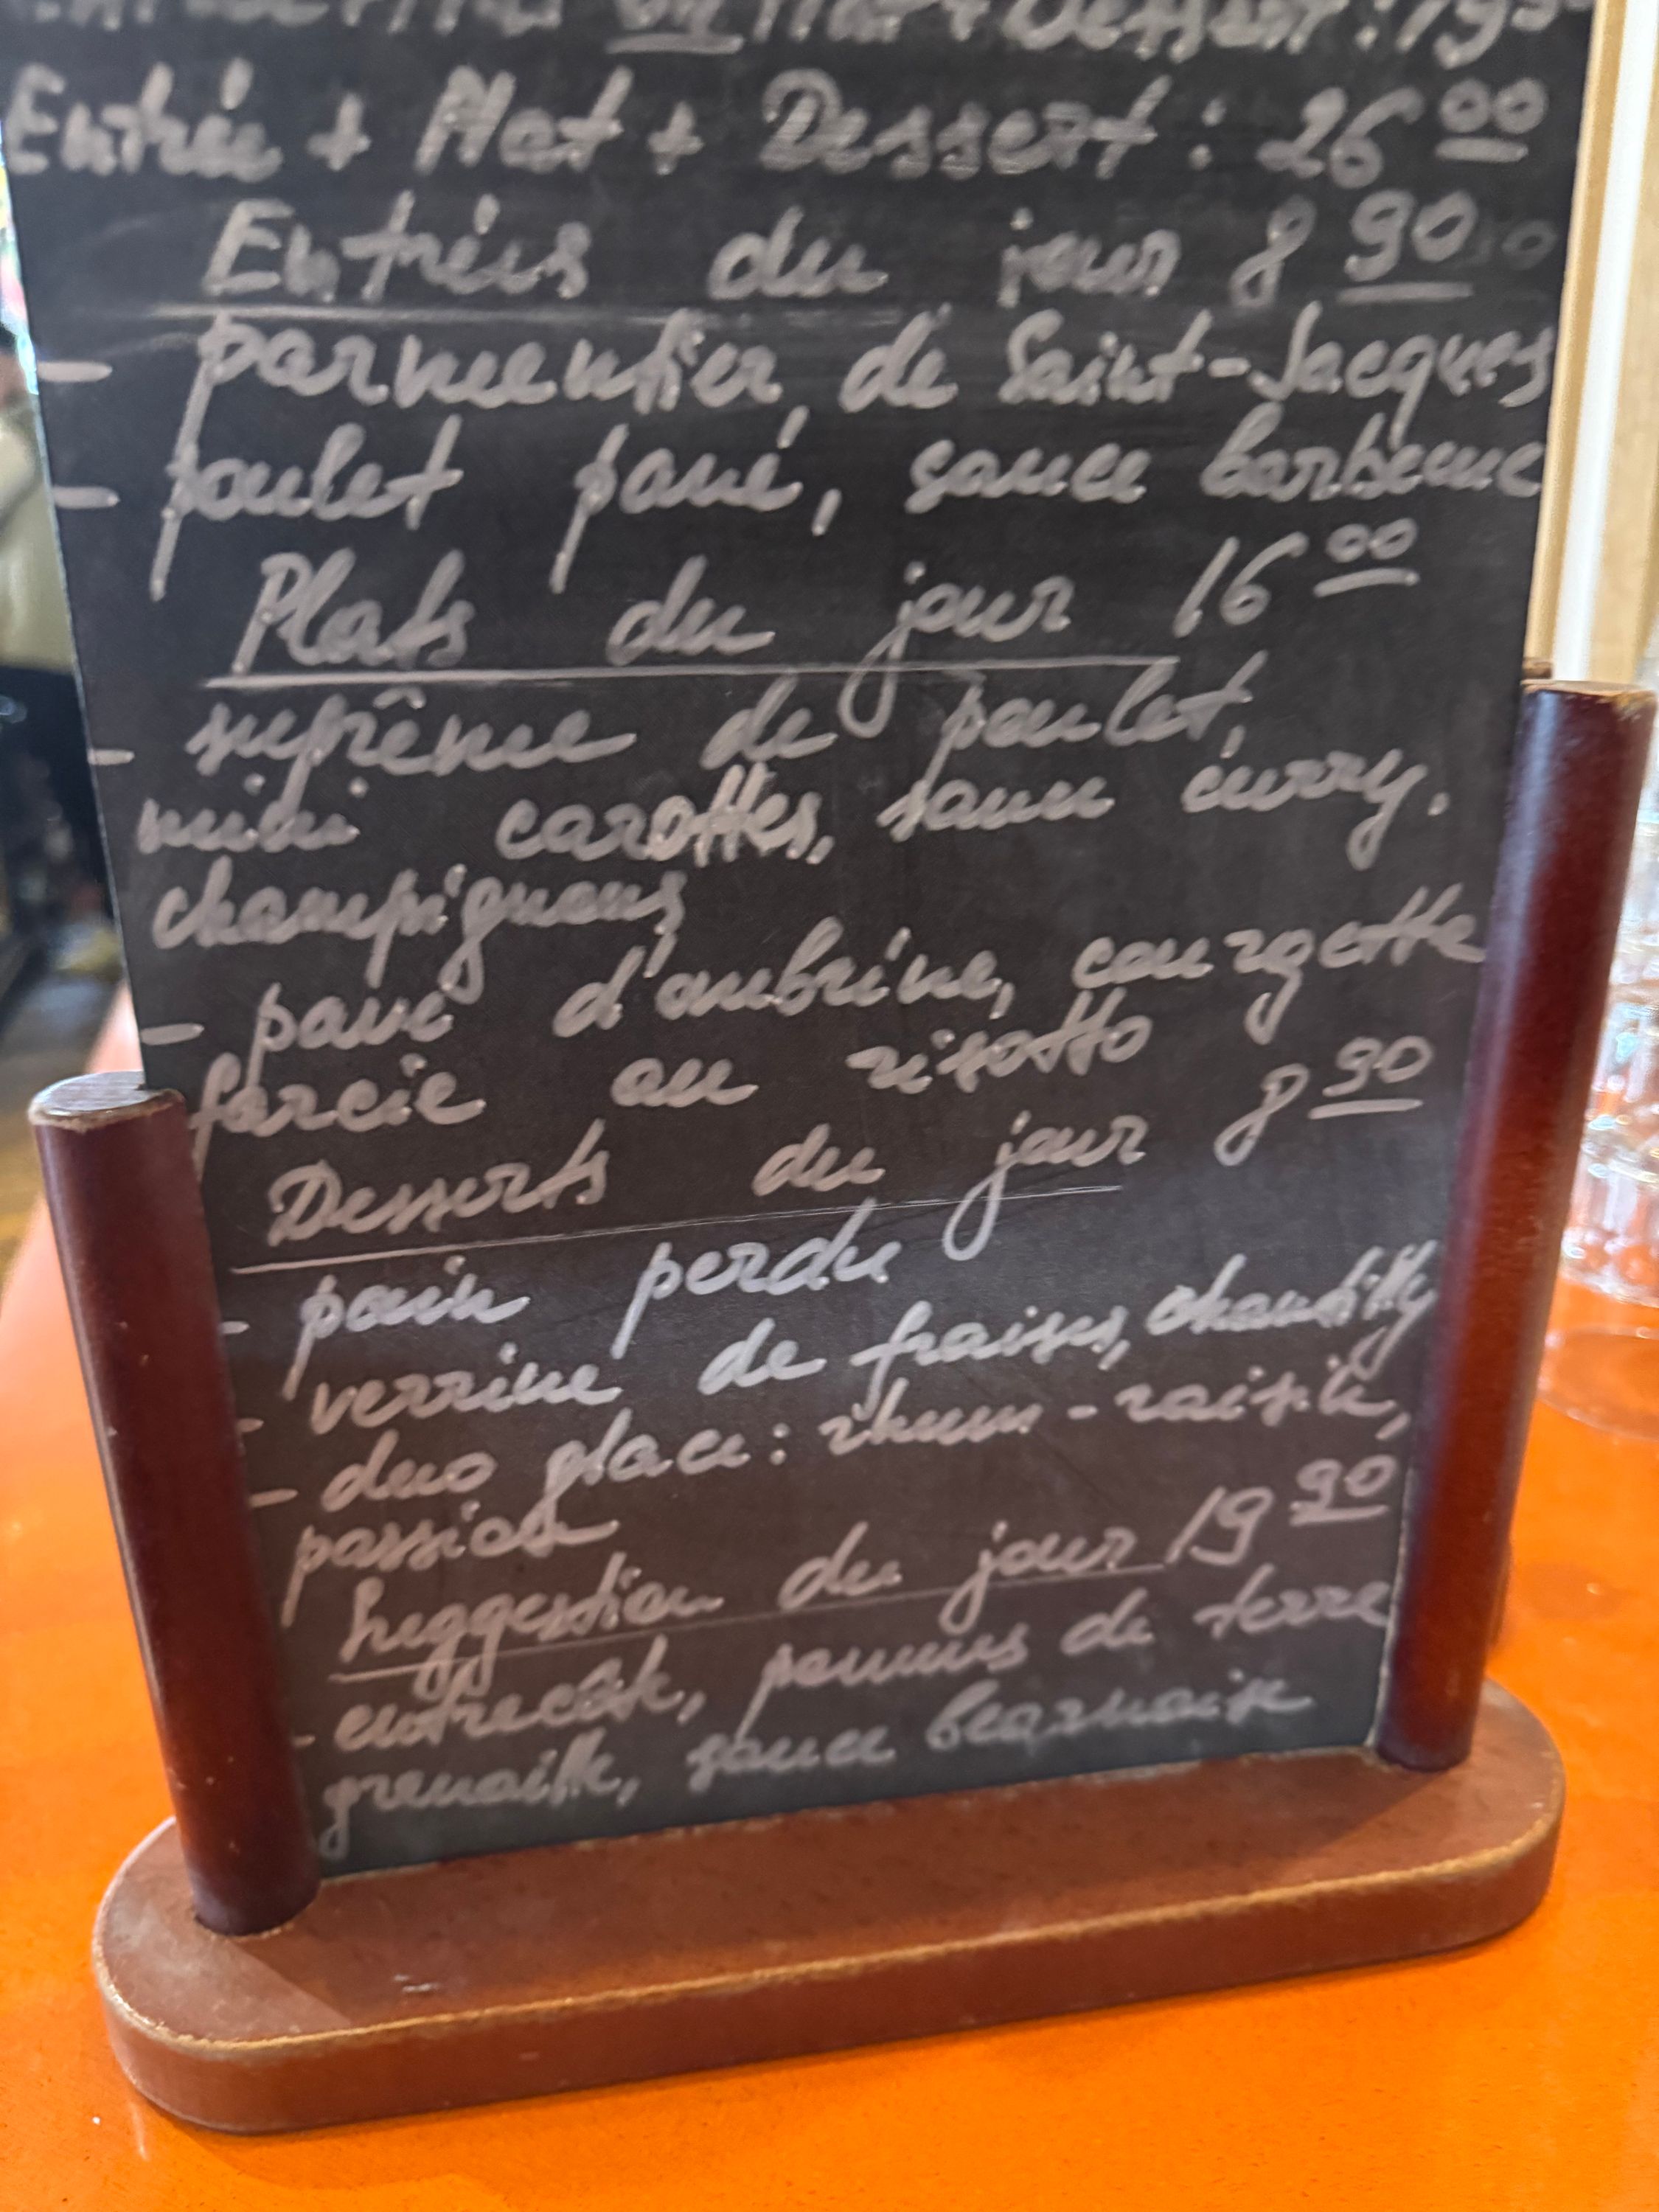 Entrée + Plat ou Plat + Dessert : 19 90
Entrée + Plat + Dessert : 26 00
Entrées du jour 8 90
- parmentier de Saint-Jacques
- poulet pané, sauce barbecue
Plats du jour 16 00
- suprême de poulet,
mini carottes, sauce curry.
champignons
- pavé d'aubrine, courgette
farcie au risotto
Desserts du jour 8 90
- pain perdu
- verrine de fraises, chantilly
- duo glace : rhum-raisin,
passion
Suggestion du jour 19 90
- entrecôte, pommes de terre
grenaille, sauce bearnaise